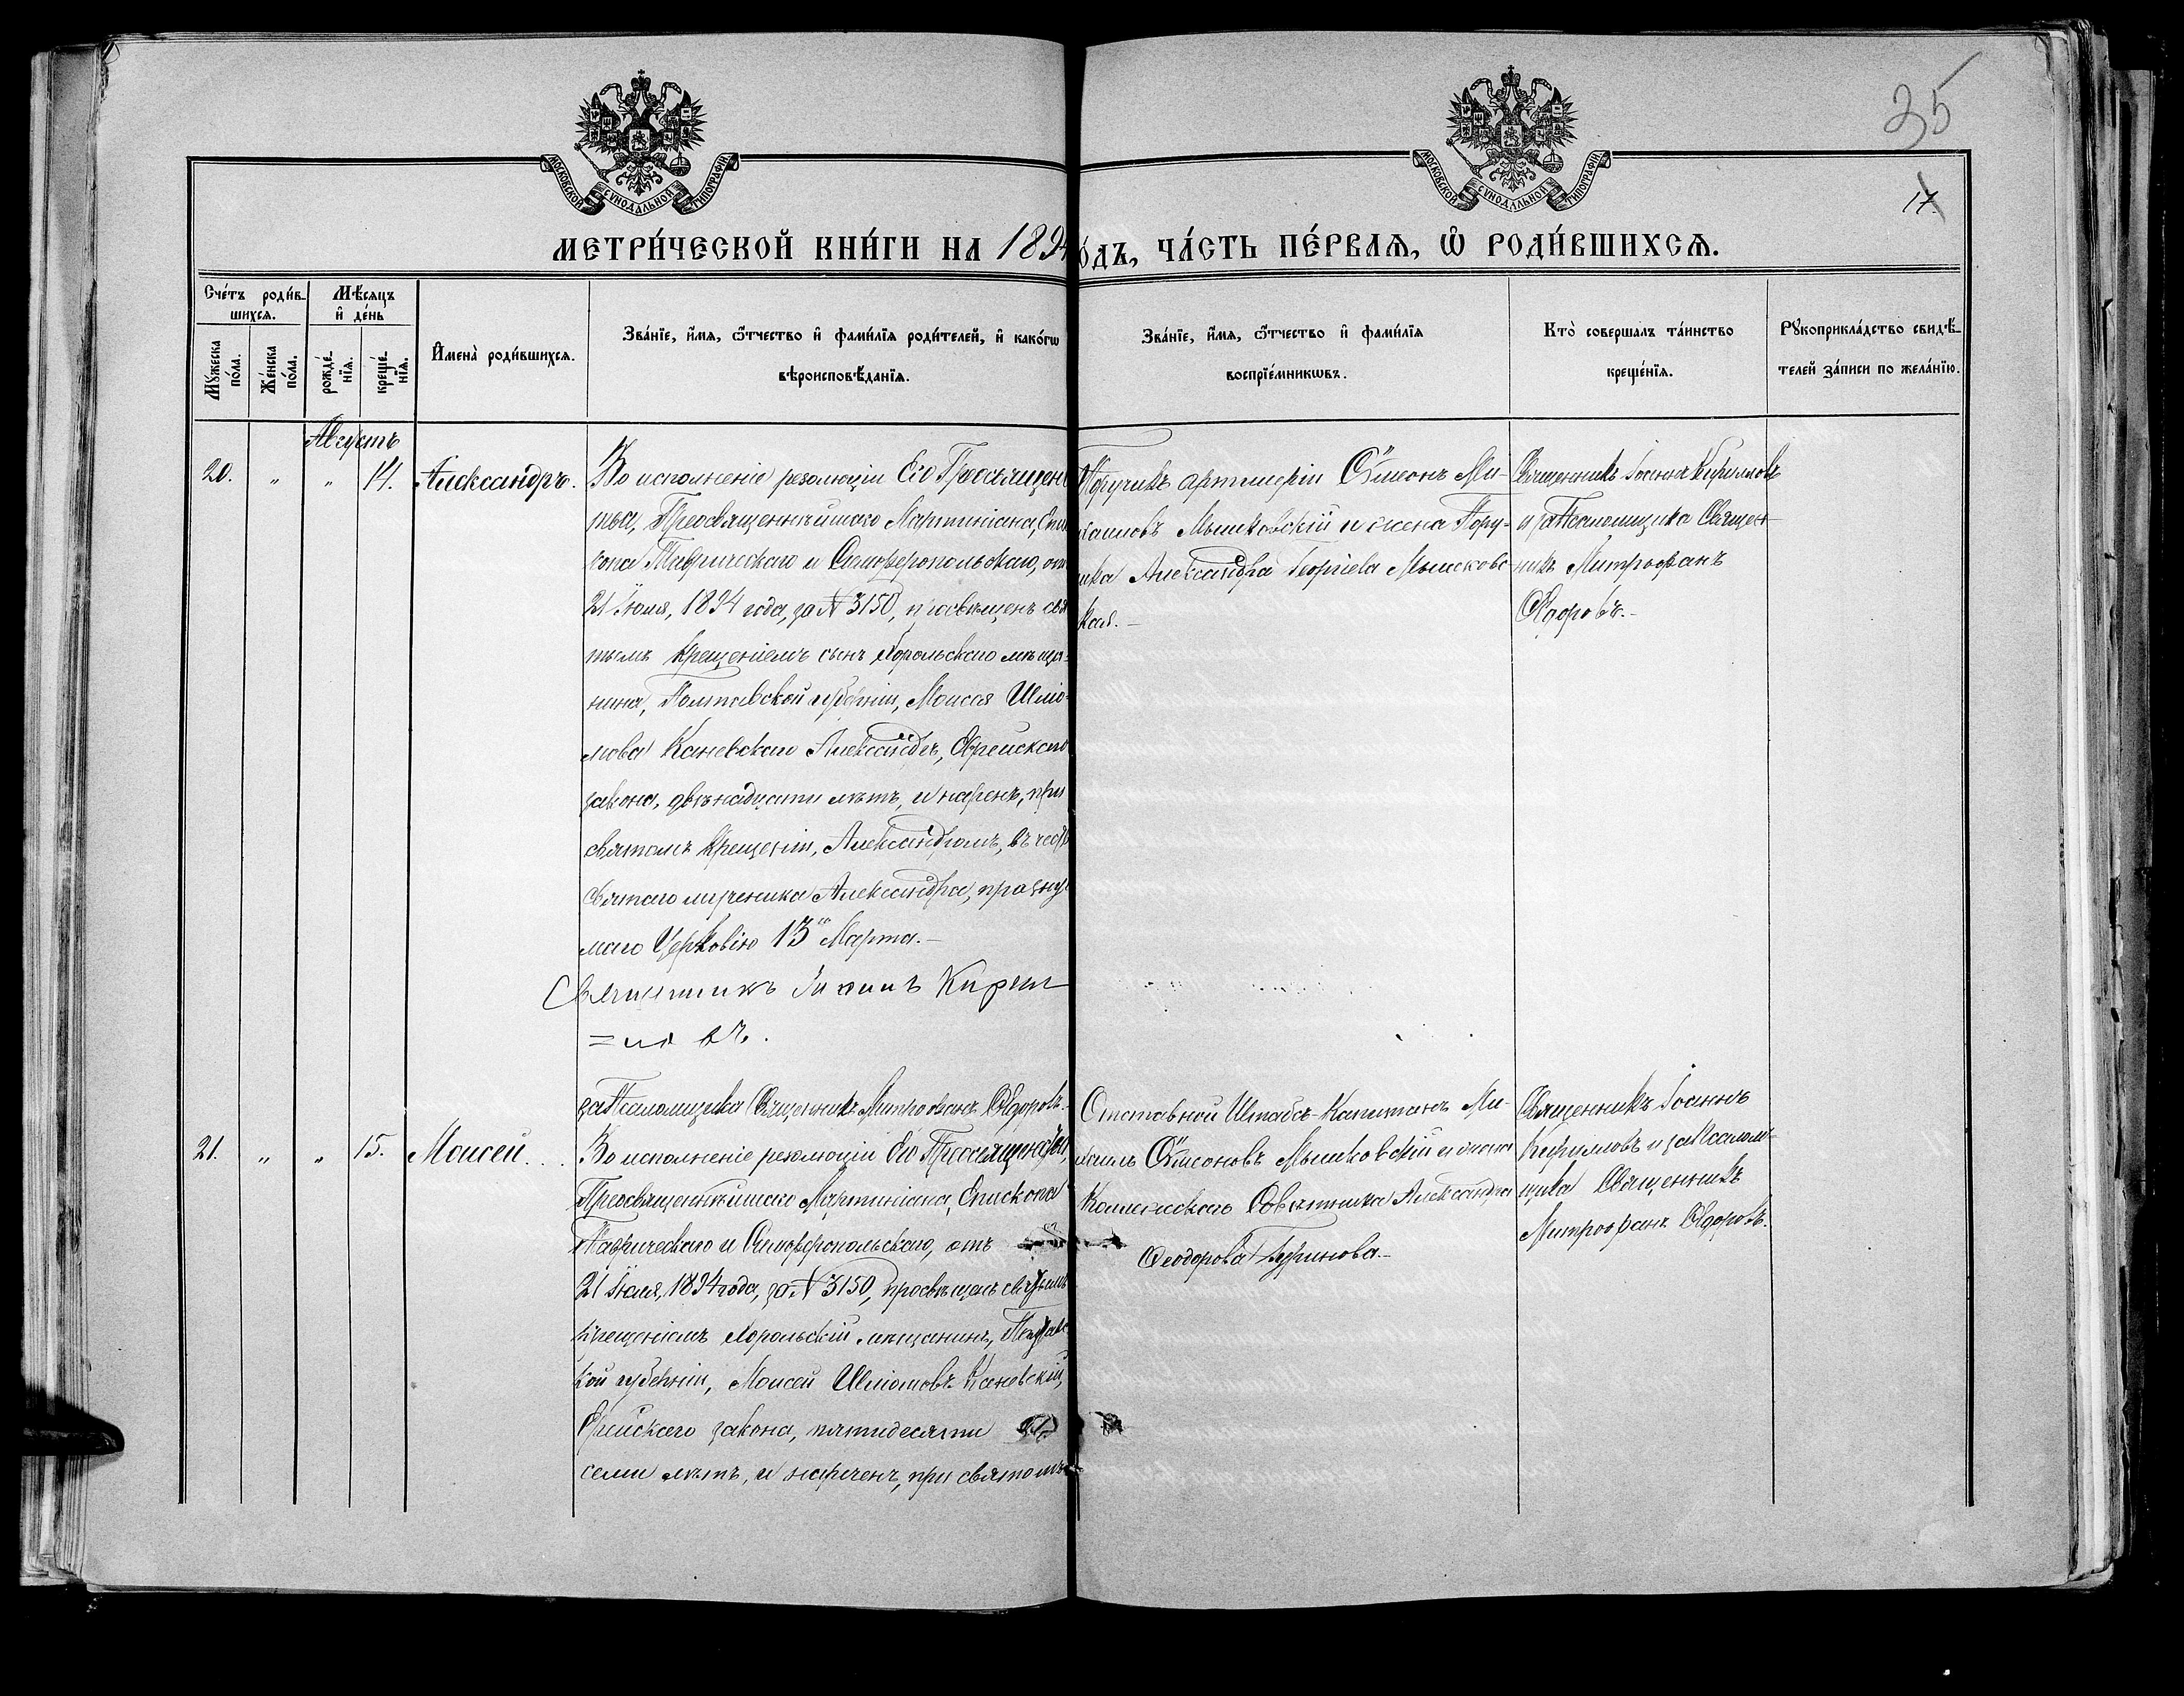 35
17.
МОСКОВСКОЙ СѴНОДАЛЬНОЙ ТИПОГРАФІИ
МОСКОВСКОЙ СѴНОДАЛЬНОЙ ТИПОГРАФІИ
МЕТРИ́ЧЕСКОЙ КНИ́ГИ НА 1894
О́ДЪ, ЧА́СТЬ ПЕ́РВАѦ, Ѿ РОДИ́ВШИХСѦ.
Счéтъ роди́в-
шихсѧ.
Мѹ́жеска
пóла.
Жéнска
пóла.
Мѣ́сѧцъ
и҆ дéнь
рождé-
нїѧ.
крещé-
нїѧ.
И҆менà роди́вшихсѧ.
Звáнїе, и҆́мѧ, ѻ҆́тчество и҆ фами́лїѧ роди́телей, и҆ какóгѡ
вѣроисповѣ́данїѧ.
Звáнїе, и҆́мѧ, ѻ҆́тчество и҆ фами́лїѧ
воспрїéмникѡвъ.
Ктò совершáлъ тáинство
крещéнїѧ.
Рѹкоприклáдство свидѣ́-
телей зáписи по желáнїю.
Августъ
20. " " 14. Александръ.
Во исполненіе резолюціи Его Преосвящен
ства, Преосвященнѣйшаго Мартиніана, Епи
скопа Таврическаго и Симферопольскаго, от
21 Іюля, 1894 года, за № 3150, просвѣщенъ свя
тымъ Крещеніемъ сынъ Хорольскаго мѣща-
нина, Полтавской губерніи, Моисея Шлио-
мова Каневскаго Александръ, Еврейскаго
закона, двѣнадцати лѣтъ, и нареченъ, при
святомъ Крещеніи, Александромъ, въ честь
Святаго мученика Александра, празнуе
маго Церковію 13го Марта.-
Священникъ Іоаннъ Кирил
=ловъ.
за Псаломщика Священникъ Митрофанъ Ѳедоровъ.
Поручикъ артиллеріи Сѵмеонъ Ми-
хаиловъ Мышковскій и жена Пору-
чика Александра Георгіева Мышковс
кая.-
Священникъ Іоаннъ Кирилловъ
и за Псаломщика Священ-
никъ Митрофанъ
Ѳедоровъ.-
21. " " 15. Моисей...
Во исполненіе резолюціи Его Преосвященства,
Преосвященнѣйшаго Мартиніана, Епископа
Таврическаго и Симферопольскаго, отъ
21 Іюля, 1894 года, за № 3150, просвѣщенъ святымъ
Крещеніемъ Хорольскій мѣщанинъ, Полтавс
кой губерніи, Моисей Шлиомовъ Каневскій,
Еврейскаго закона, пятидесяти
семи лѣтъ, и нареченъ, при святомъ
Отставной Штабсъ-Капитанъ Ми-
хаилъ Сѵмеоновъ Мышковскій и жена
Коллежскаго Совѣтника Александра
Ѳеодорова Буринова.-
Священникъ Іоаннъ
Кирилловъ и за Псалом-
щика Священникъ
Митрофанъ Ѳедоровъ.